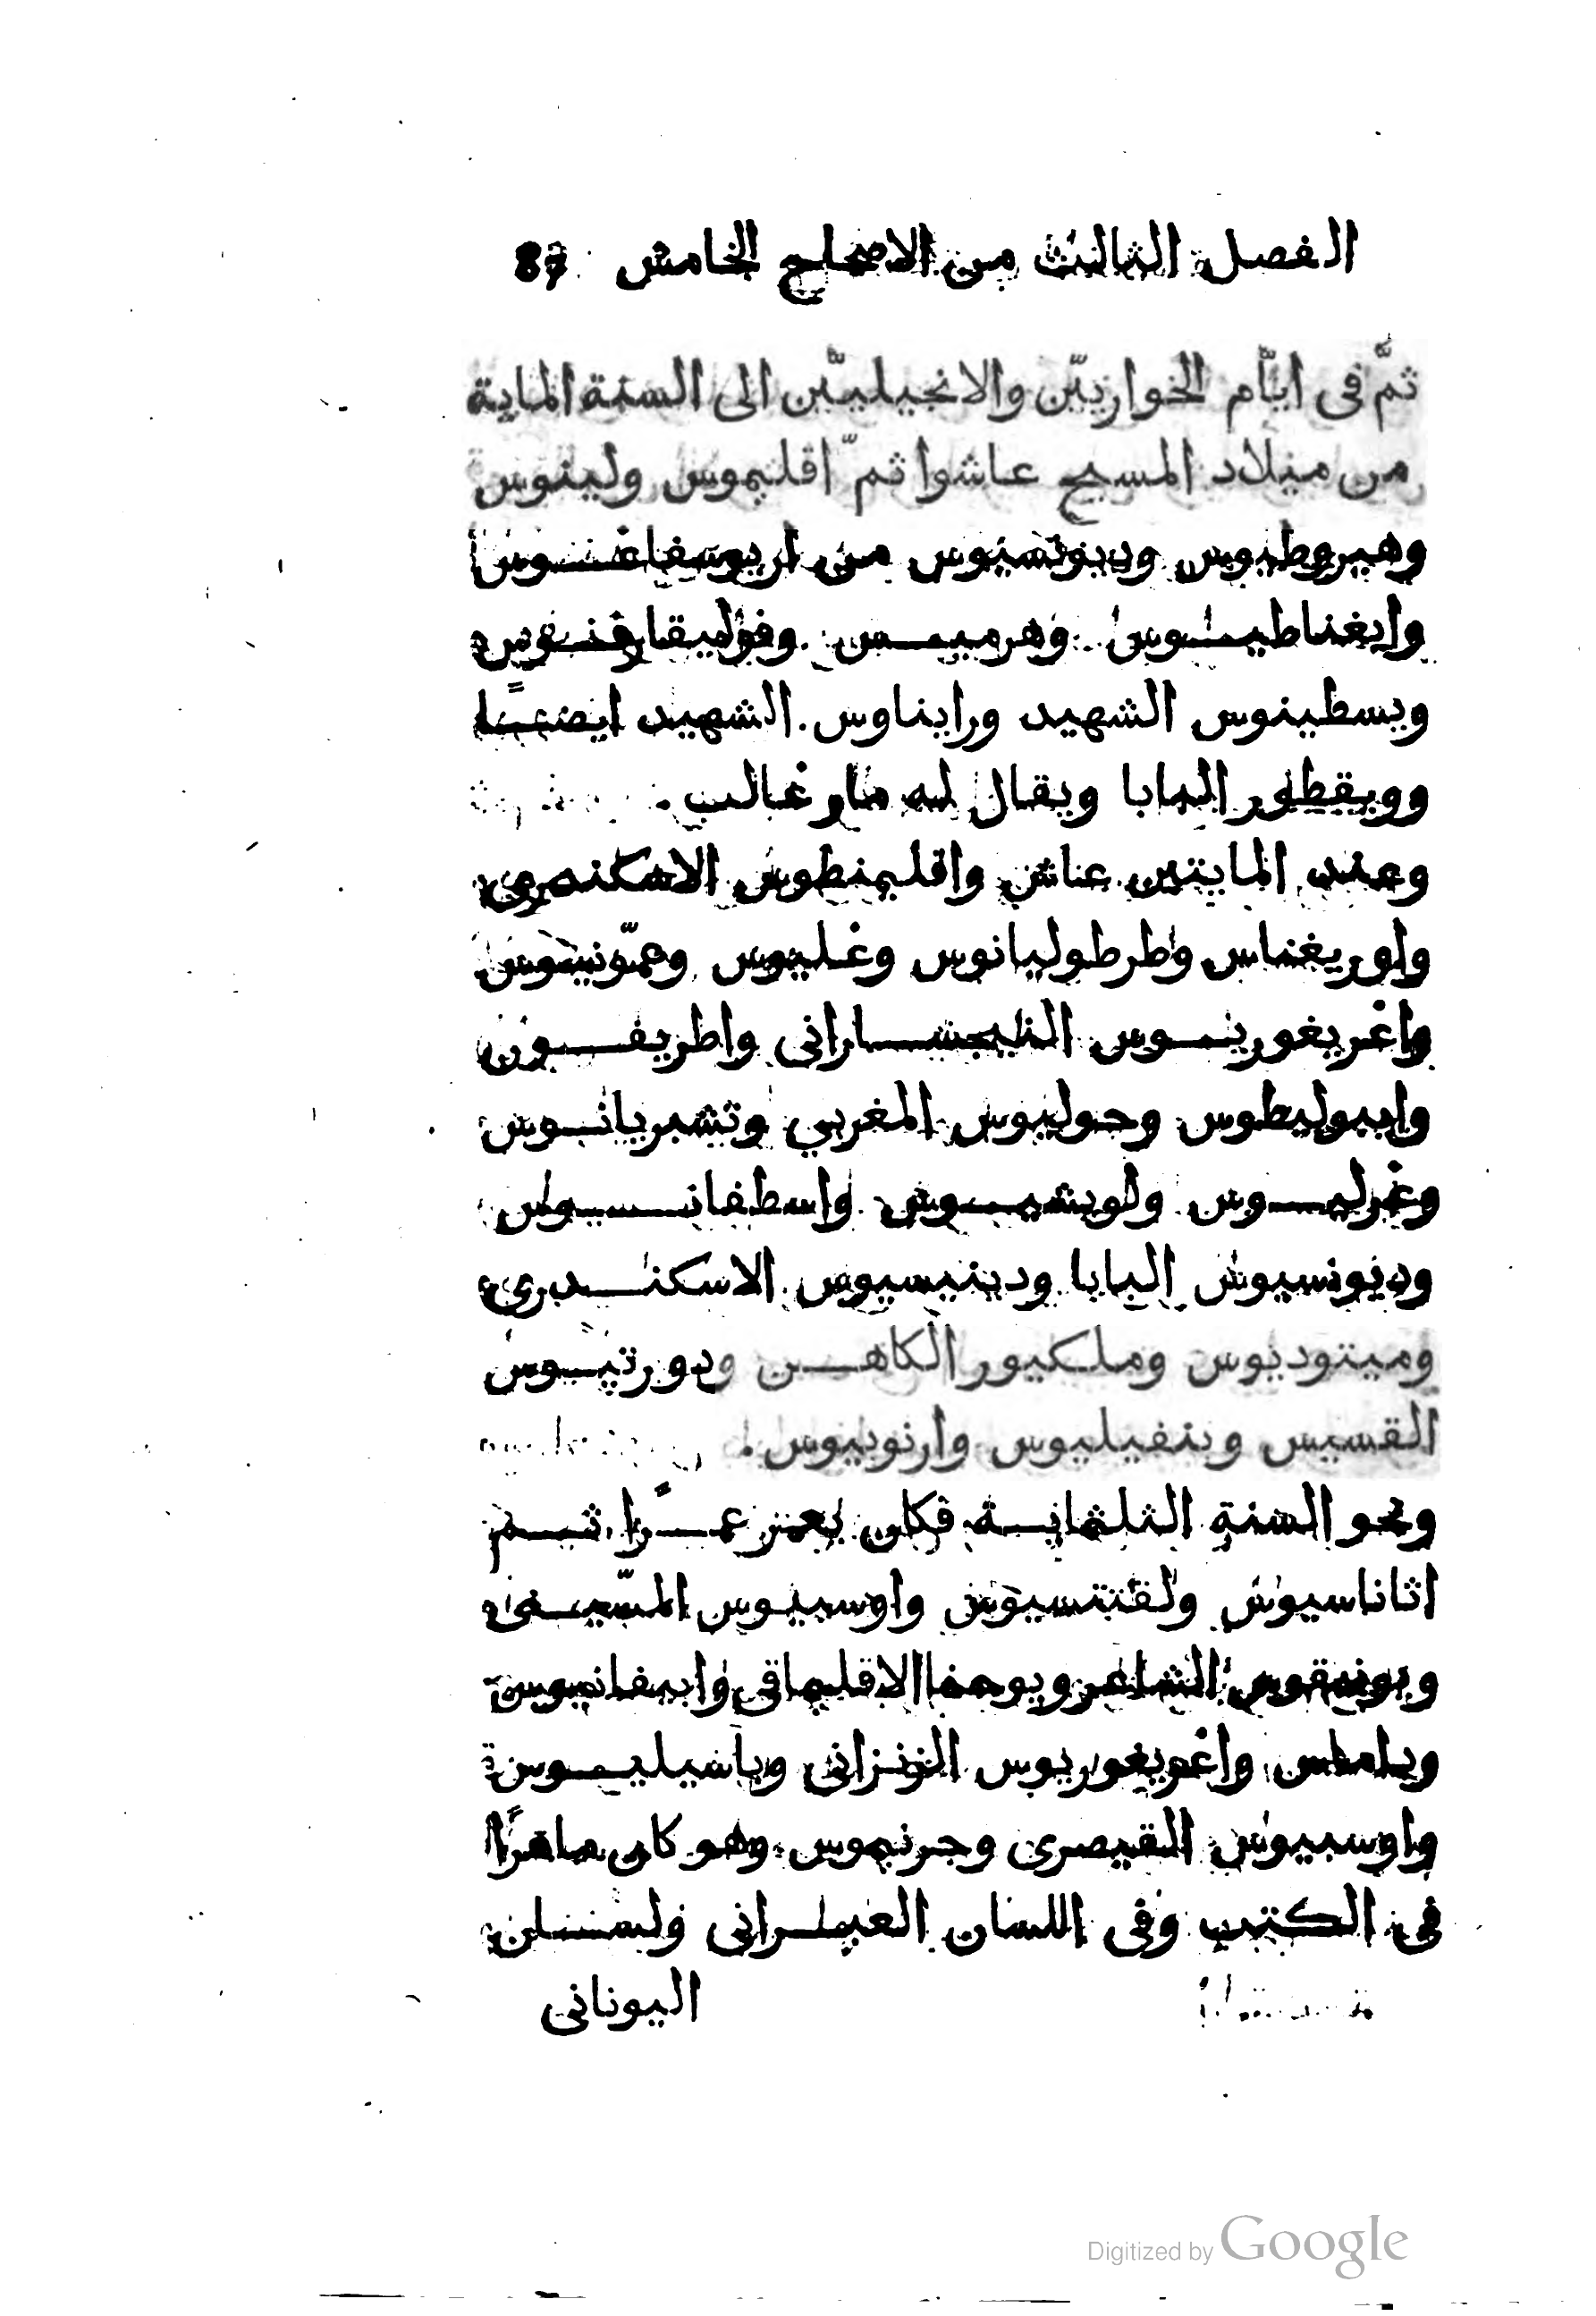 الفصل الثالث من الاصحاح الخامس 87
ثمّ فى ايّام الخواريّين والانجيليّين الى السنة الماية
من ميلاد المسيح عاشوا ثمّ اقليموس ولينوس
وهيروطيوس وديونسيوس من اريوسفاغنوس
وايغناطيوس وهرميس وفوليقارفنوس
ويسطينوس الشهيد ورايناوس الشهيد ايضًا
وويقطور البابا ويقال له مار غالب .
وعند المايتين عاش واقليمنطوس الاسكندرى
واوريغناس وطرطوليانوس وغليوس وهمّونيوس
واغريغوريوس النايجشارانى واطريفون
وايبوليطوس وجوليوس المغربي وتشبريانوس
وغرليوس ولويشيوس واسطفانسيوس
وديونسيوس البابا ودينيسيوس الاسكندرى
وميتوديوس وملكيور الكاهن ودورتيوس
القسيس وبنفيليوس وارنوبيوس .
ونحو السنة الثلثماية فكان يعمر عمرًا ثم
اثاناسيوس ولقتنسيوس واوسبيوس
الشاعر ويوحنا الاقليماقى وابيفانيوس
واغريغوريوس النزنزانى وباسيليوس
واوسبيوس القيصرى وجرنيموس وهو كان ماهرًا
فى الكتب وفى اللسان العبرانى ولسان
اليونانى
Digitized by Google